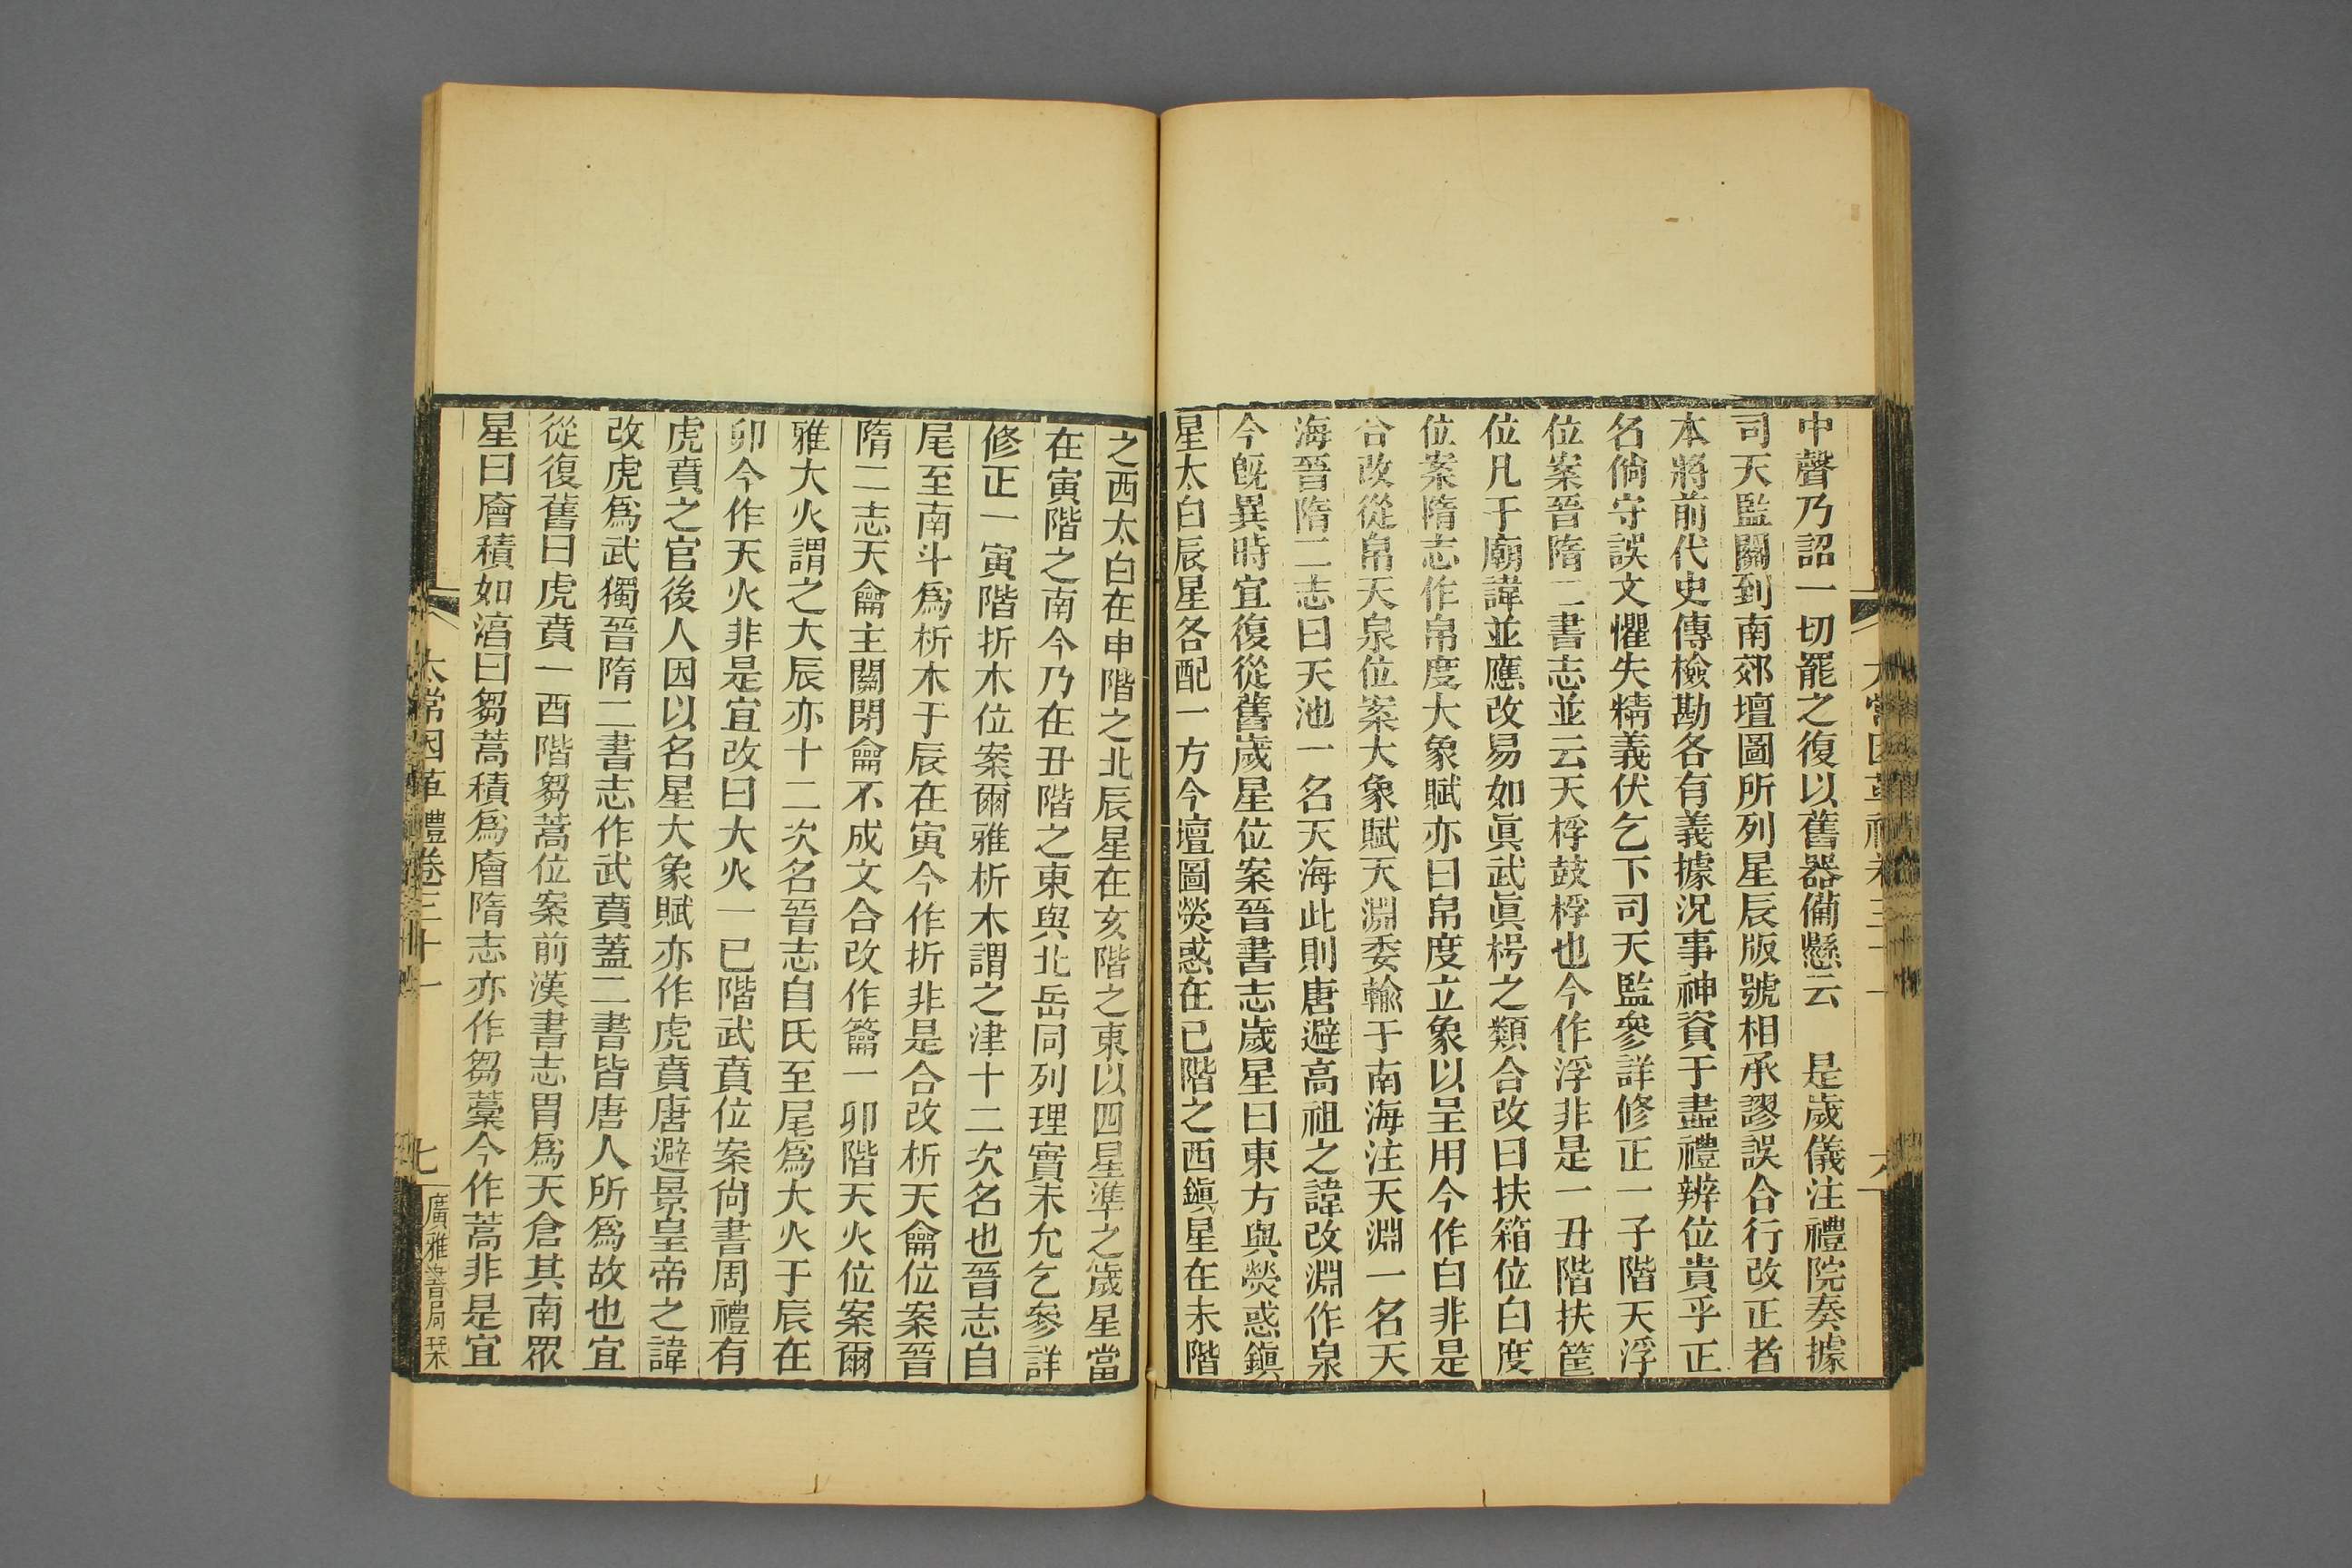 中聲乃詔一切罷之復以舊器備懸云　是歲儀注禮院奏據
司天監關到南郊壇圖所列星辰版號相承謬誤合行改正者
本將前代史傳檢勘各有義據況事神資于盡禮辨位貴乎正
名倘守誤文懼失精義伏乞下司天監參詳修正一子階天浮
位案晉隋二書志並云天桴鼓桴也今作浮非是一丑階扶筐
位凡于廟諱並應改易如眞武眞枵之類合改曰扶箱位白度
位案隋志作帛度大象賦亦曰帛度立象以呈用今作白非是
合改從帛天泉位案大象賦天淵委輸于南海注天淵一名天
海晉隋二志曰天池一名天海此則唐避高祖之諱改淵作泉
今旣異時宜復從舊歲星位案晉書志歲星曰東方與熒惑鎭
星太白辰星各配一方今壇圖熒惑在巳階之西鎭星在未階
之西太白在申階之北辰星在亥階之東以四星準之歲星當
在寅階之南今乃在丑階之東與北岳同列理實未允乞參詳
修正一寅階折木位案爾雅析木謂之津十二次名也晉志自
尾至南斗爲析木于辰在寅今作折非是合改析天龠位案晉
隋二志天龠主關閉龠不成文合改作籥一卯階天火位案爾
雅大火謂之大辰亦十二次名晉志自氐至尾爲大火于辰在
卯今作天火非是宜改曰大火一巳階武賁位案尙書周禮有
虎賁之官後人因以名星大象賦亦作虎賁唐避景皇帝之諱
改虎爲武獨晉隋二書志作武賁蓋二書皆唐人所爲故也宜
從復舊曰虎賁一酉階芻蒿位案前漢書志胃爲天倉其南眾
星曰廥積如湻曰芻蒿積爲廥隋志亦作芻藁今作蒿非是宜
太常因革禮卷三十一
七
廣雅書局栞